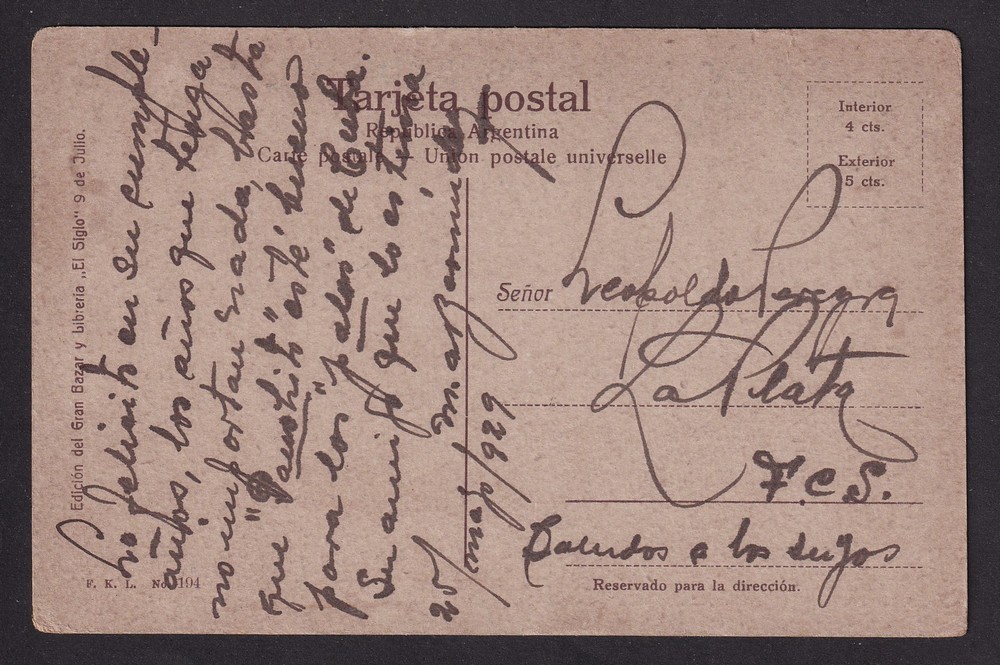 Tarjeta postal
República Argentina
Carte postale — Unión postale universelle
Interior
4 cts.
Exterior
5 cts.
Edición del Gran Bazar y Libreria „El Siglo" 9 de Julio.
F. K. L. No. 194
Lo felicito en su cumple-
años, los años que tenga
no importan nada, hasta
que " " esté bueno
para los "palos" de
Su amigo que lo estima
25/mayo/929
Señor Leopoldo Pereyra
La Plata
F.C.S.
Saludos a los suyos
Reservado para la dirección.